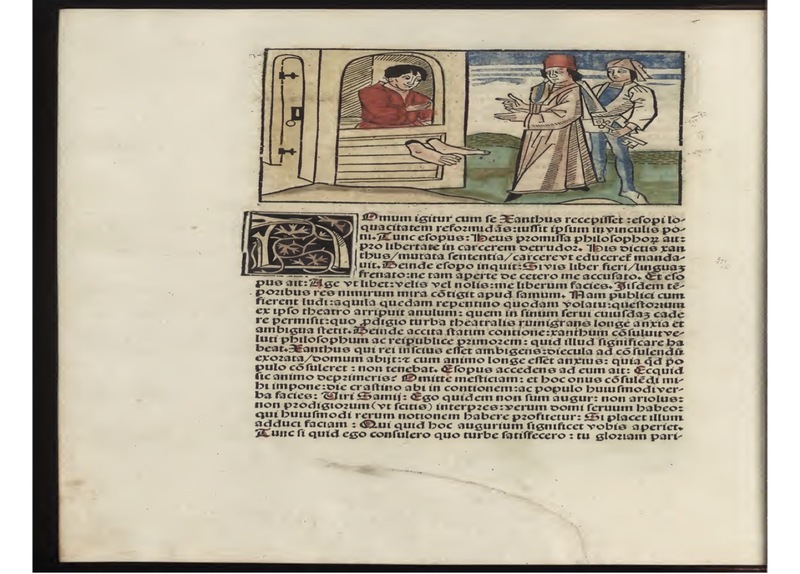 Domum igitur cum se Xanthus recepisset: esopi lo-
quacitatem reformidãs: iussit ipsum in vinculis po-
ni. Tunc esopus: Heus promissa philosophor̃ aut
pro libertate in carcerem detrudor. His dictis xan
thus/mutata sententia/carcere vt educeret̃ manda-
uit. Deinde esopo inquit: Si vis liber fieri/linguaʒ
frenato: ne tam aperte de cetero me accusato. Et eso
pus ait: Age vt libet: velis vel nolis: me liberum facies. Iisdem tẽ-
poribus res nimirum mira cõtigit apud samum. Nam publici cum
fierent ludi: aquila quedam repentino quodam volatu: questorum
ex ipso theatro arripuit anulum: quem in sinum serui cuiusdaʒ cade
re permisit: quo ꝓdigio turba theatralis rumigrans longe anxia et
ambigua stetit. Deinde accita statum contione: xanthum cõsuluit ve-
luti philosophum ac reipublice primorem: quid illud significare ha
beat. Xanthus qui rei inscius esset ambigens: diecula ad cõsulendũ
exorata/domum abijt: ⁊ cum animo longe esset anxius: quia qd̃ po
pulo cõsuleret: non tenebat. Esopus accedens ad eum ait: Ecquid
sic animo deprimeris? Omitte mesticiam: et hoc onus cõsulẽdi mi-
hi impone: die crastino abi in contionem: ac populo huiusmodi ver-
ba facies: Viri Samij: Ego quidem non sum augur: non ariolus:
non prodigiorum (vt scitis) interpres: verum domi seruum habeo:
qui huiusmodi rerum notionem habere profitetur: Si placet illum
adduci faciam: Qui quid hoc augurium significet vobis aperiet.
Tunc si quid ego consulero quo turbe satisfecero: tu gloriam pari-